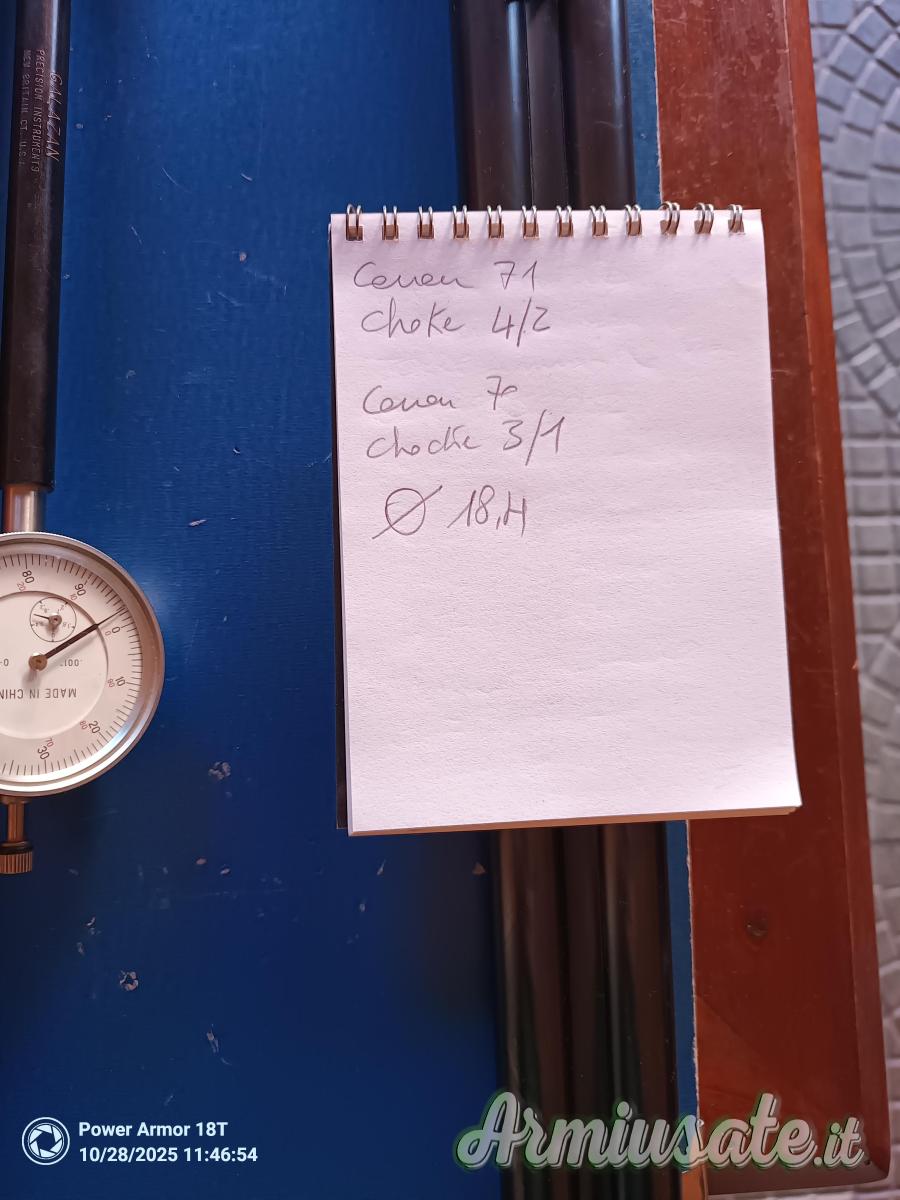 GALAZAN
PRECISION INSTRUMENTS
NEW BRITAIN, CT. U.S.
Canon 71
choke 4/2
Canon 70
chocke 3/1
Ø 18,4
80
90
0
10
20
30
MADE IN CHIN
Power Armor 18T
10/28/2025 11:46:54
Armiusate.it